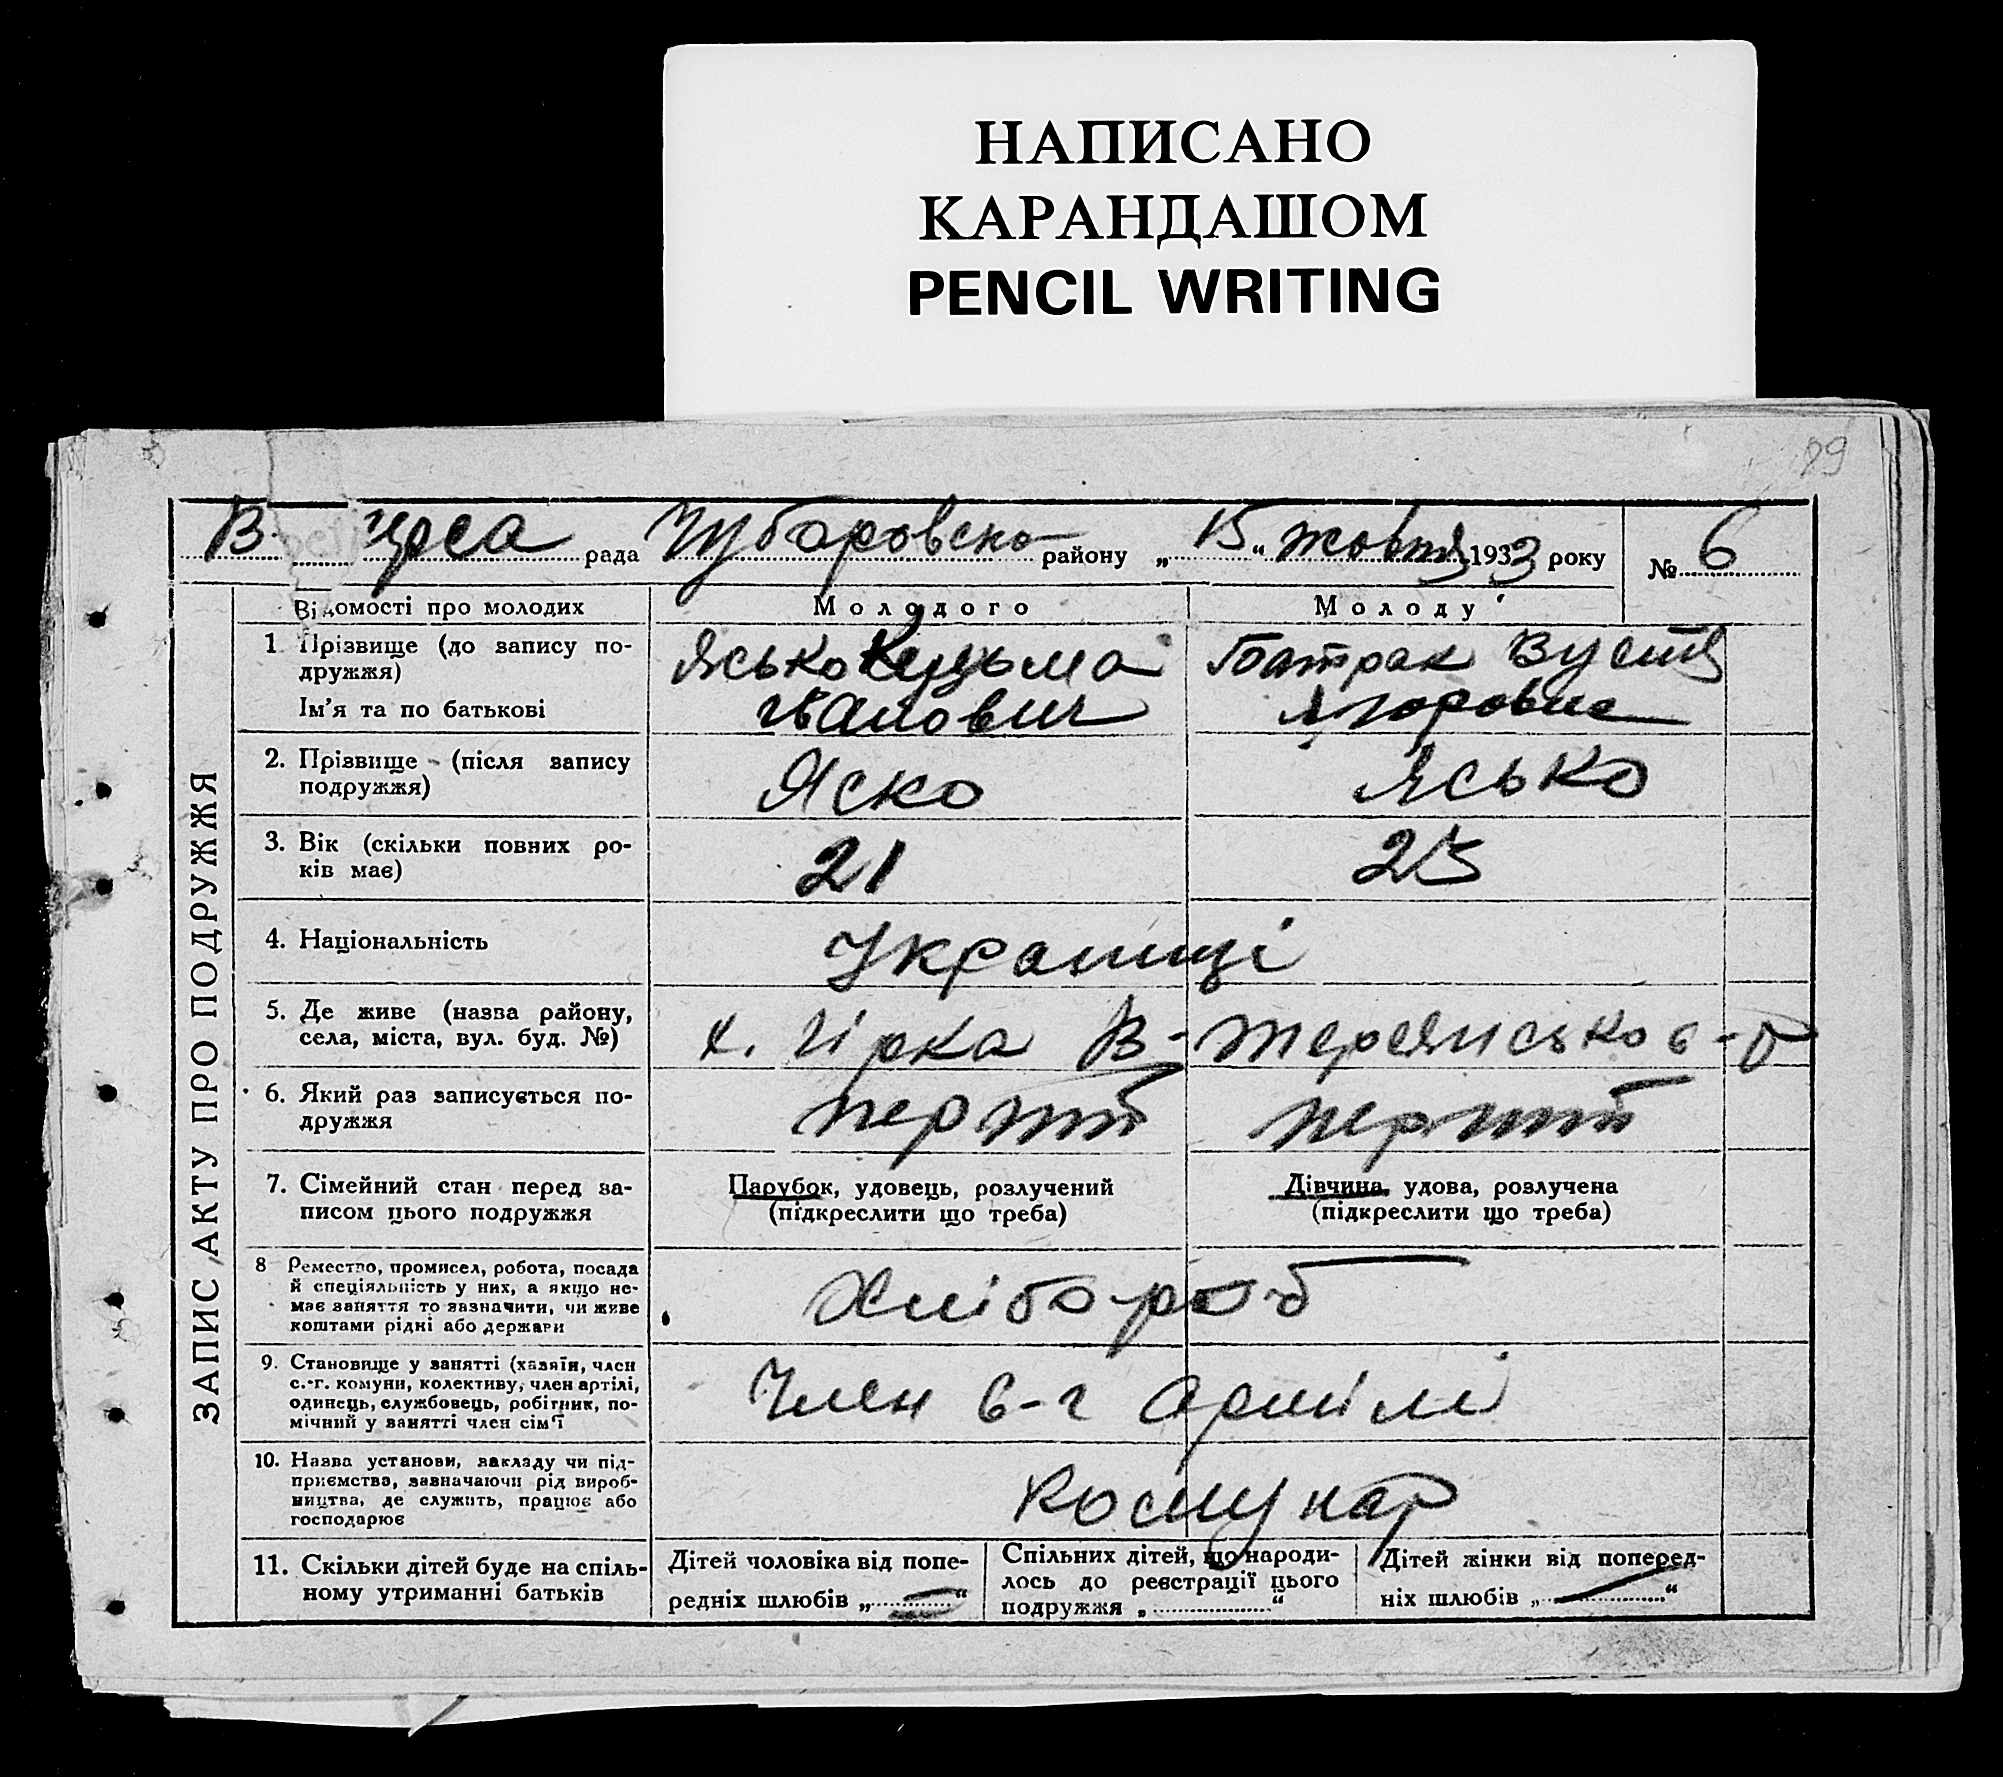 НАПИСАНО
КАРАНДАШОМ
PENCIL WRITING
ЗАПИС АКТУ ПРО ПОДРУЖЖЯ
В- рада Чубаровско району „15“ жовтня 1933 року № 6
Відомості про молодих Молодого Молоду
1 Прізвище (до запису по-
дружжя)
Ім'я та по батькові
Ясько Кузьма
Іванович
Батрак Вустя
Ягоровна
2. Прізвище (після запису
подружжя)
Яско Ясько
3. Вік (скільки повних ро-
ків має)
21 25
4. Національність
Украинці
5. Де живе (назва району,
села, міста, вул. буд. №)
х. Гірка В- с-р
6. Який раз записується по-
дружжя
перший перший
7. Сімейний стан перед за-
писом цього подружжя
Парубок, удовець, розлучений
(підкреслити що треба)
Дівчина, удова, розлучена
(підкреслити що треба)
8 Ремество, промисел, робота, посада
й спеціяльність у них, а якщо не-
має заняття то зазначити, чи живе
коштами рідні або держави
Хлібороб
9. Становище у занятті (хазяїн, член
с.-г. комуни, колективу, член артілі,
одинець, службовець, робітник, по-
мічний у занятті член сім'ї
Член с-г артілі
10. Назва установи, закладу чи під-
приємства, зазначаючи рід вироб-
ництва, де служить, працює або
господарює
11. Скільки дітей буде на спіль-
ному утриманні батьків
Дітей чоловіка від попе-
редніх шлюбів „ “
Спільних дітей, що народи-
лось до реєстрації цього
подружжя „ “
Дітей жінки від поперед-
ніх шлюбів „ “